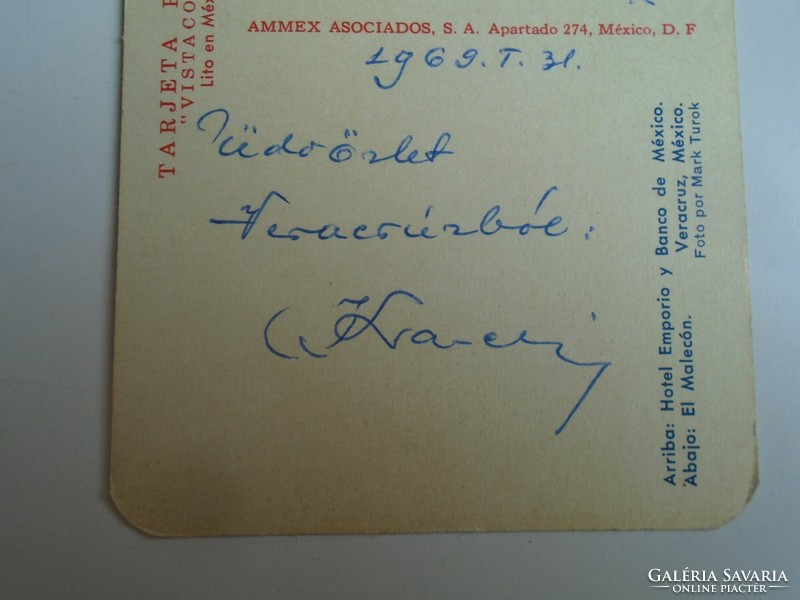 AMMEX ASOCIADOS, S. A. Apartado 274, México, D. F
1969. I. 31.
Üdvözlet
Veracrúzból:
TARJETA
"VISTACO
Lito en Méx
Arriba: Hotel Emporio y Banco de México.
Veracruz, México.
Abajo: El Malecón.
Foto por Mark Turok
GALÉRIA SAVARIA
ONLINE PIACTÉR